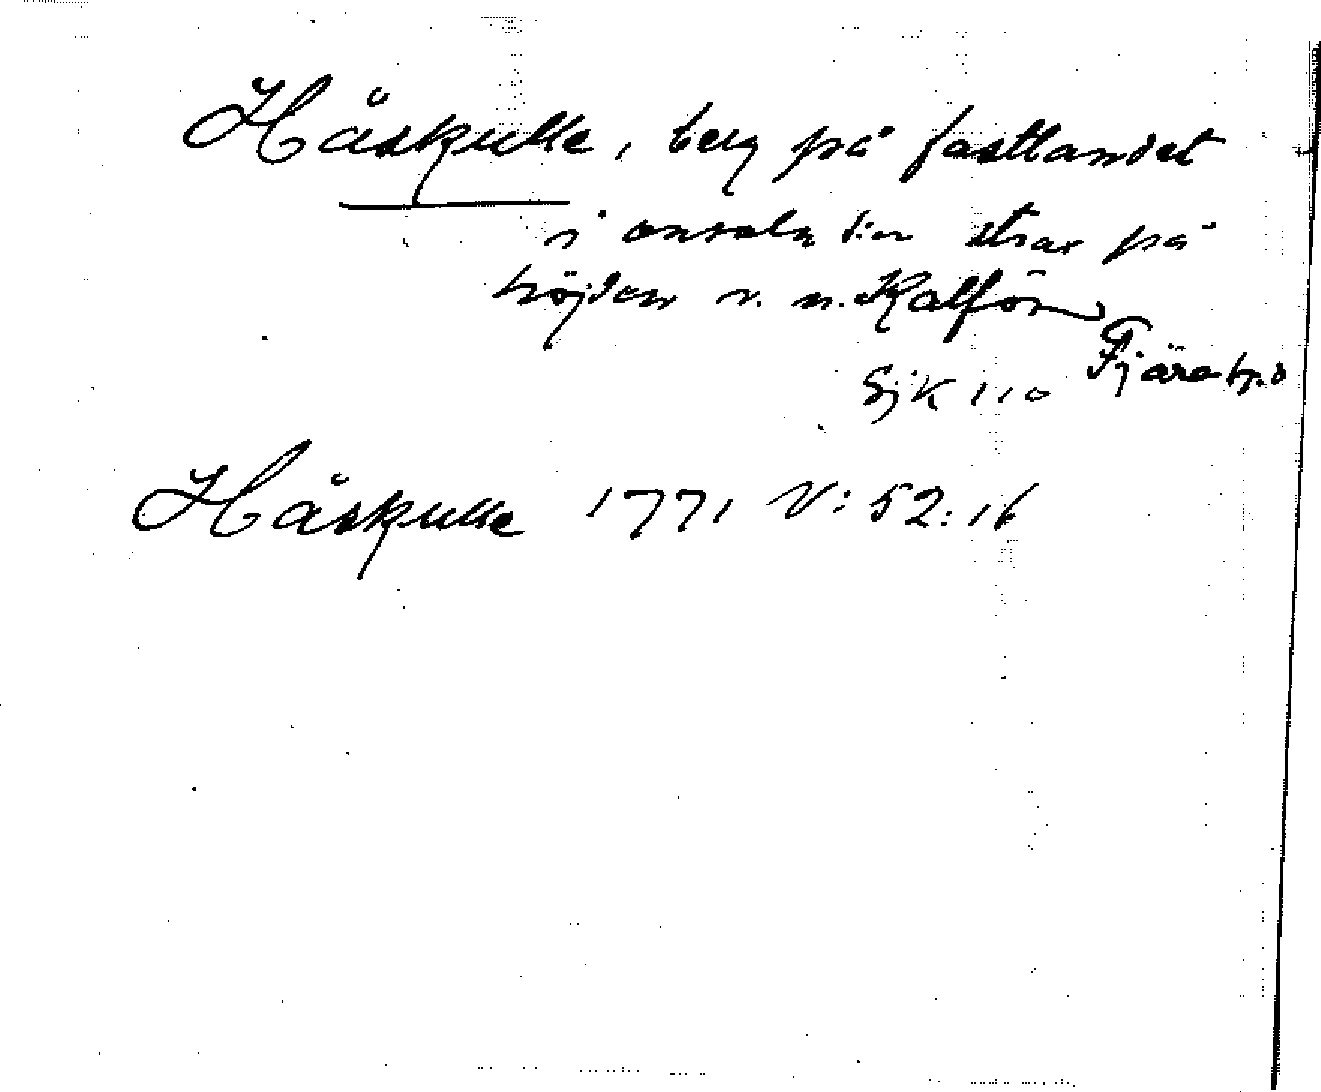 Håskulle, berg på fastlandet
i onsala s:n strax på
höjden v. n. Kalfön
Fjäre hd
Sjk 110
Håskulle 1771 V: 52: 16